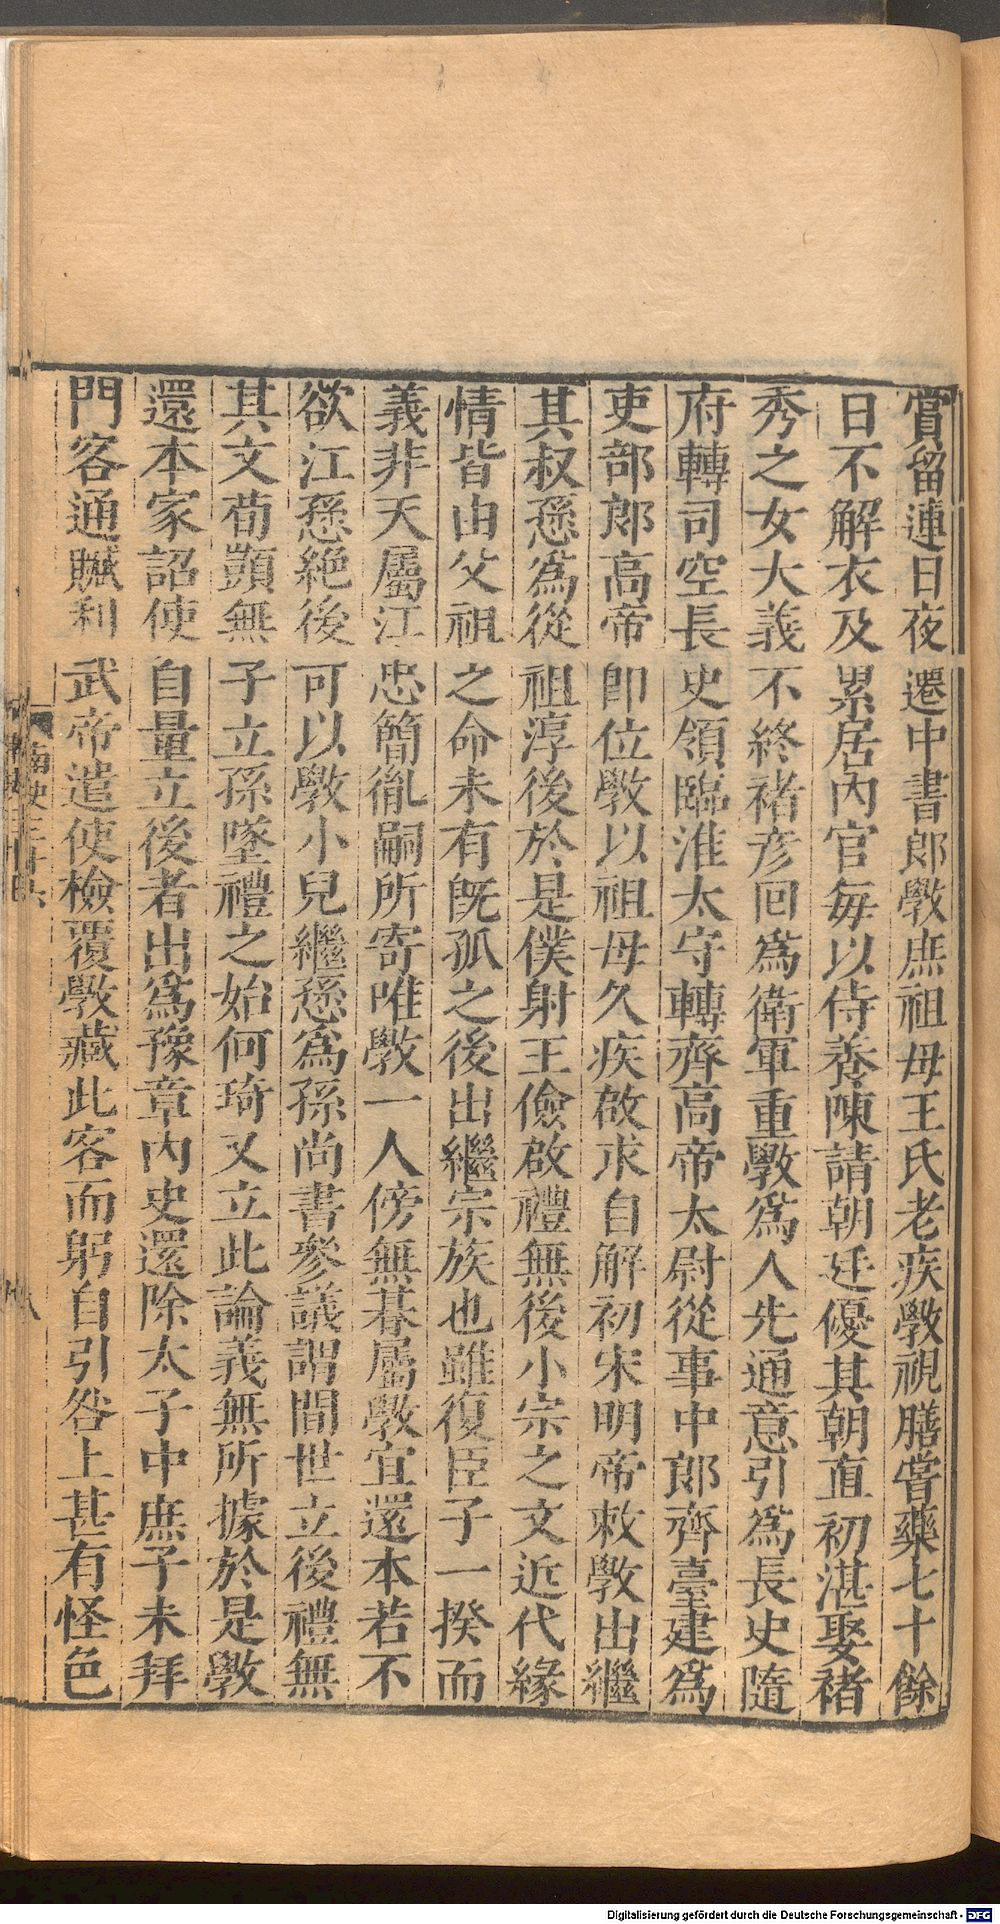 賞留連日夜遷中書郎斆庶祖母王氏老疾斆視膳嘗藥七十餘
日不解衣及累居內官每以侍養陳請朝廷優其朝直初湛娶褚
秀之女大義不終褚彥回爲衛軍重斆爲人先通意引爲長史隨
府轉司空長史領臨淮太守轉齊高帝太尉從事中郎齊臺建爲
吏部郎高帝卽位斆以祖母久疾啟求自解初宋明帝敕斆出繼
其叔愻爲從祖淳後於是僕射王儉啟禮無後小宗之文近代緣
情皆由父祖之命未有旣孤之後出繼宗族也雖復臣子一揆而
義非天屬江忠簡胤嗣所寄唯斆一人傍無朞屬斆宜還本若不
欲江愻絕後可以斆小兒繼愻爲孫尚書參議謂間世立後禮無
其文荀顗無子立孫墜禮之始何琦又立此論義無所據於是斆
還本家詔使自量立後者出爲豫章內史還除太子中庶子未拜
門客通贓利武帝遣使檢覆斆藏此客而躬自引咎上甚有怪色
南史三十六
八
Digitalisierung gefördert durch die Deutsche Forschungsgemeinschaft - DFG